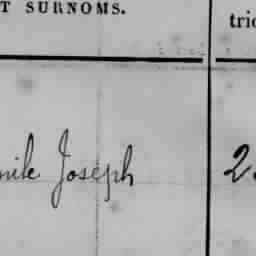 T SURNOMS.
tric
Joseph
2